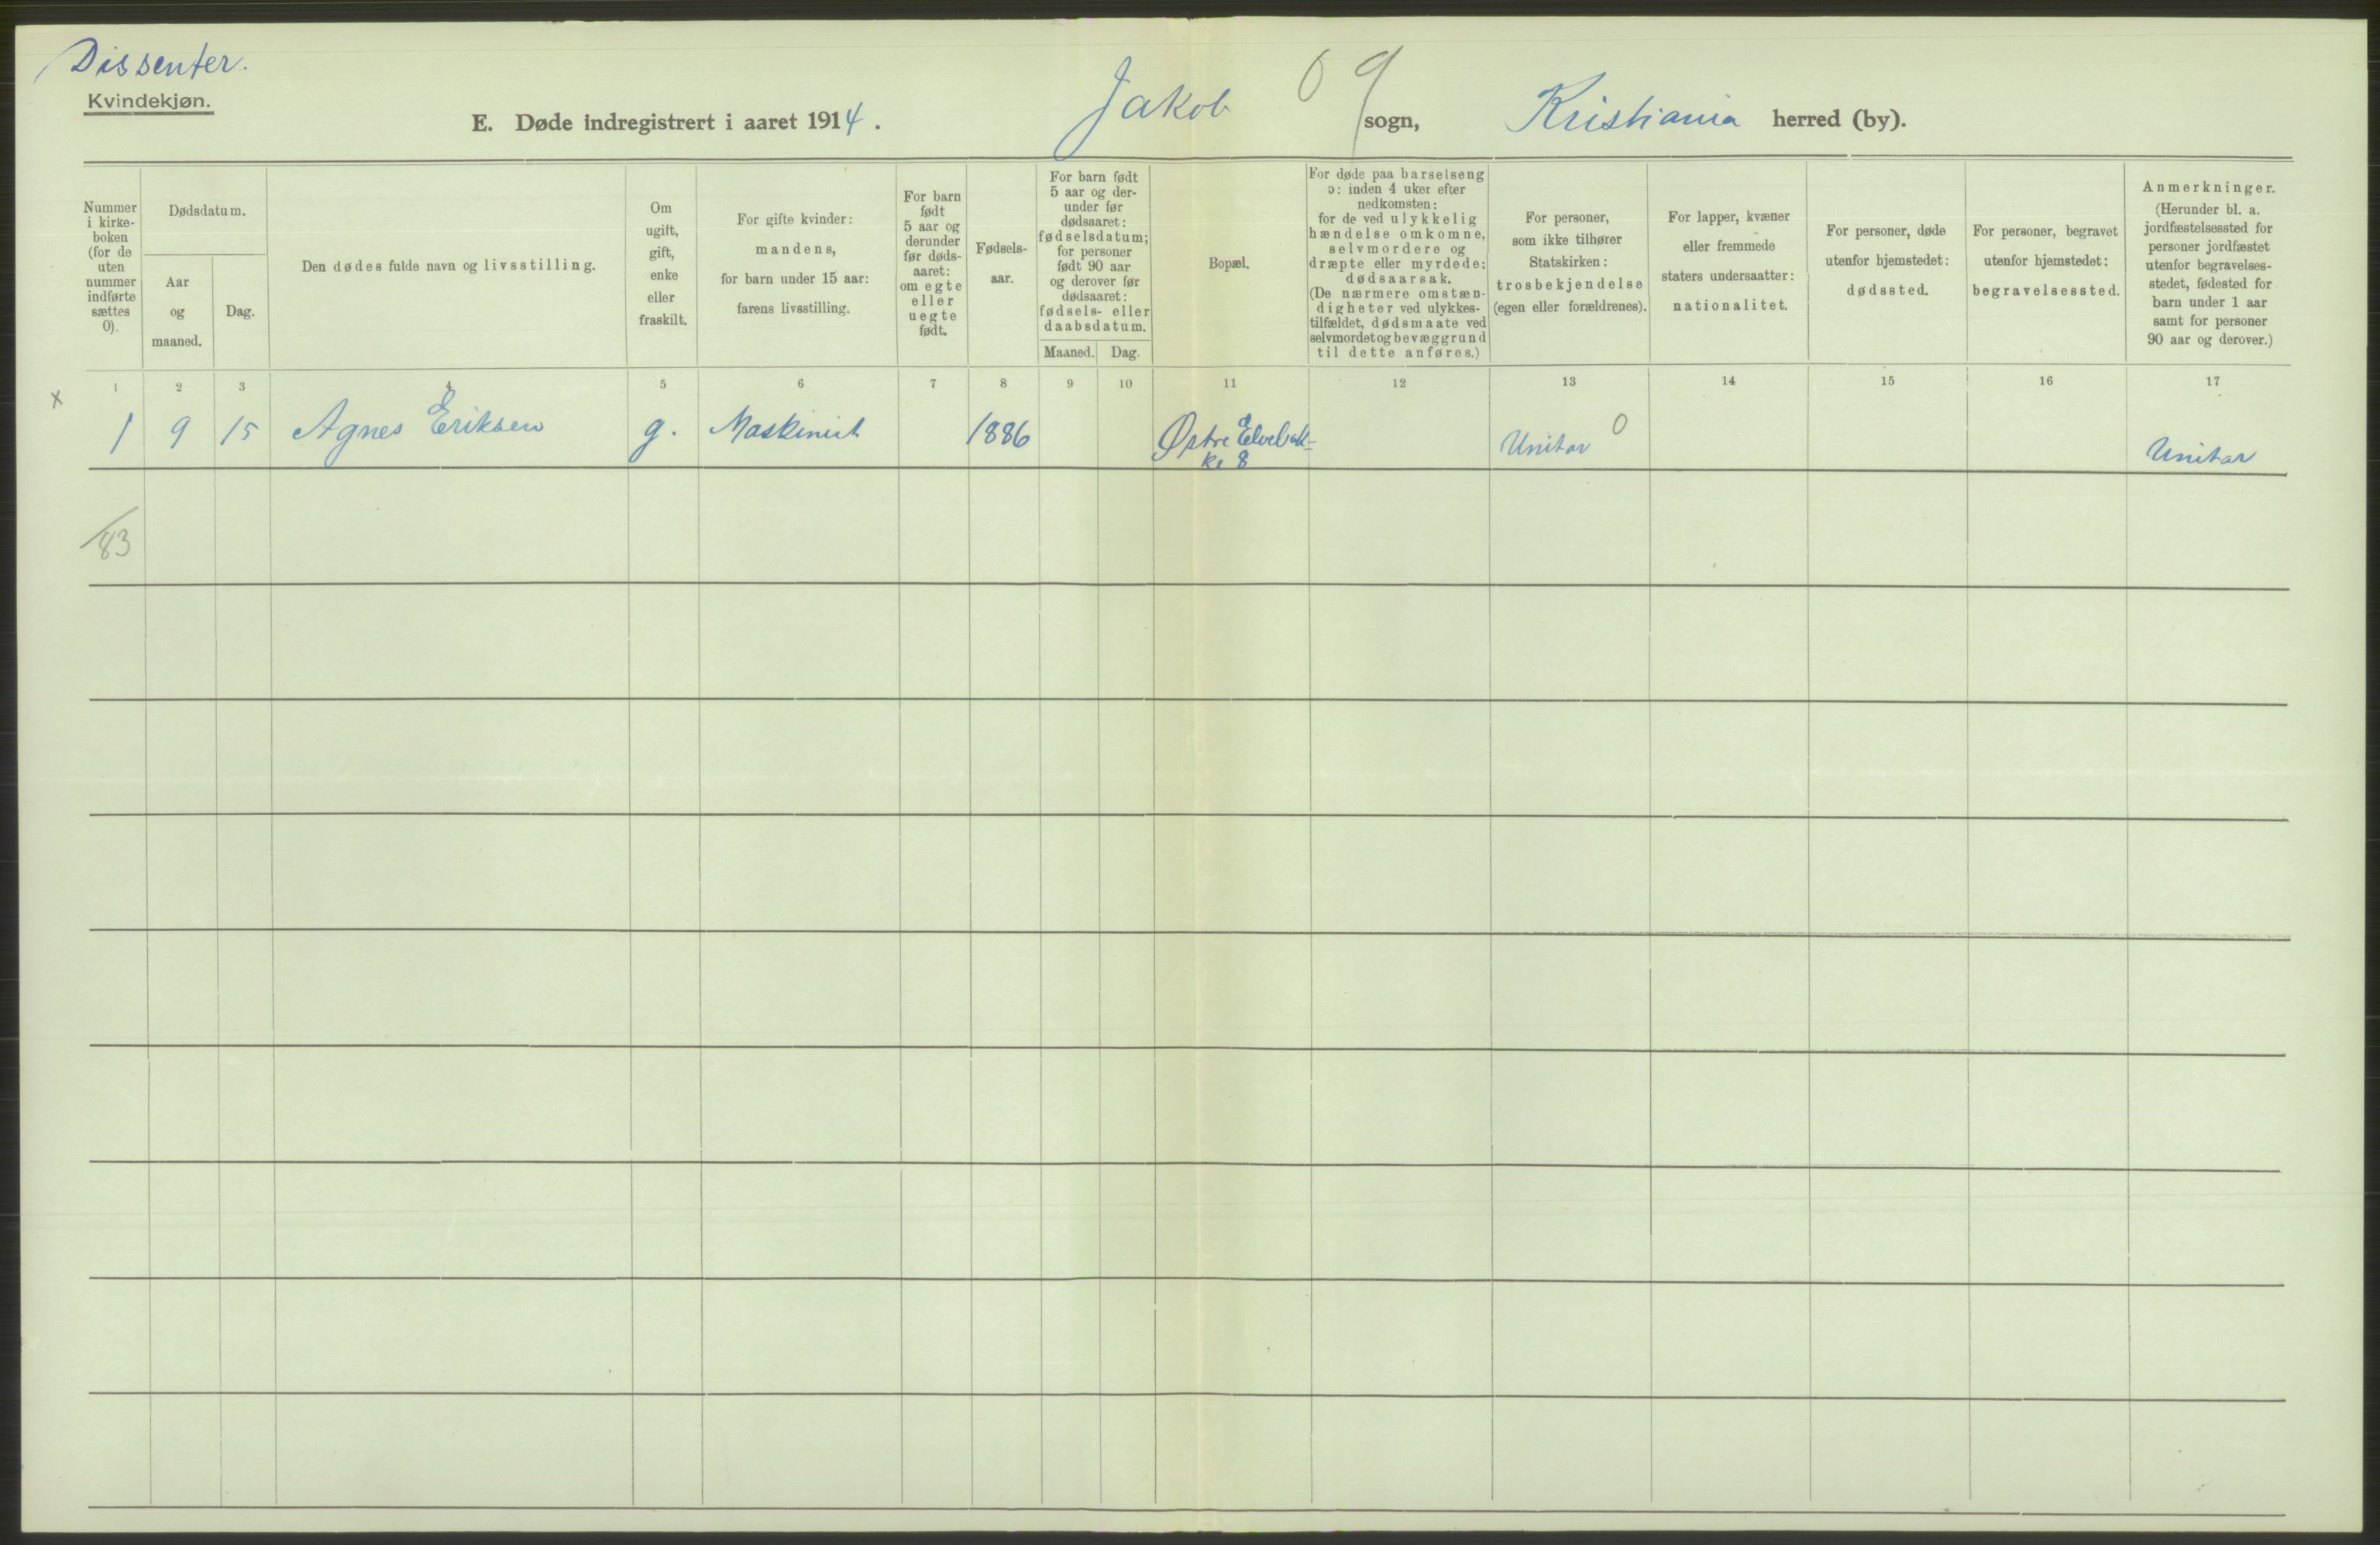 Dissenter.
Kvindekjøn.
E. Døde indregistrert i aaret 1914.
Jakob sogn,
Kristiania herred (by).
0 9
Nummer
i kirke-
boken
(for de
uten
nummer
indførte
sættes
0).
Dødsdatum.
Aar
og
maaned.
Dag.
Den dødes fulde navn og livsstilling.
Om
ugift,
gift,
enke
eller
fraskilt.
For gifte kvinder:
mandens,
for barn under 15 aar:
farens livsstilling.
For barn
født
5 aar og
derunder
før døds-
aaret:
om egte
eller
uegte
født.
Fødsels-
aar.
For barn født
5 aar og der-
under før
dødsaaret:
fødselsdatum;
for personer
født 90 aar
og derover før
dødsaaret:
fødsels- eller
daabsdatum.
Maaned. Dag.
Bopæl.
For døde paa barselseng
ɔ: inden 4 uker efter
nedkomsten:
for de ved ulykkelig
hændelse omkomne,
selvmordere og
dræpte eller myrdede:
dødsaarsak.
(De nærmere omstæn-
digheter ved ulykkes-
tilfældet, dødsmaate ved
selvmordet og bevæggrund
til dette anføres.)
For personer,
som ikke tilhører
Statskirken:
trosbekjendelse
(egen eller forældrenes).
For lapper, kvæner
eller fremmede
staters undersaatter:
nationalitet.
For personer, døde
utenfor hjemstedet:
dødssted.
For personer, begravet
utenfor hjemstedet:
begravelsessted.
Anmerkninger.
(Herunder bl. a.
jordfæstelsessted for
personer jordfæstet
utenfor begravelses-
stedet, fødested for
barn under 1 aar
samt for personer
90 aar og derover.)
1 2 3 4 5 6 7 8 9 10 11 12 13 14 15 16 17
x 1 9 15 Agnes Eriksen g. Maskinist 1886 Østre Elvebak- Unitar 0 Unitar
ke 8
83